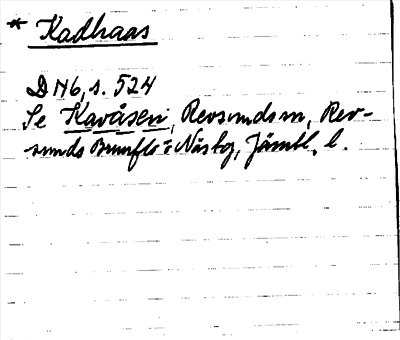 * Kadhaas
DN6, s. 524
Se Kavåsen, Revsunds sn, Rev-
sunds Brunflo o Näs tg, Jämtl. l.